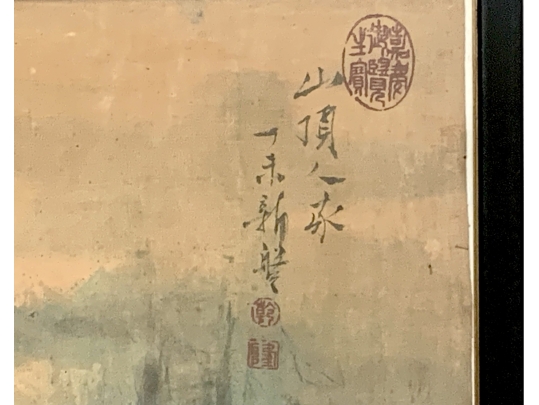 嘉慶
御覽
之寶
山頂人家
丁未新
乾
隆